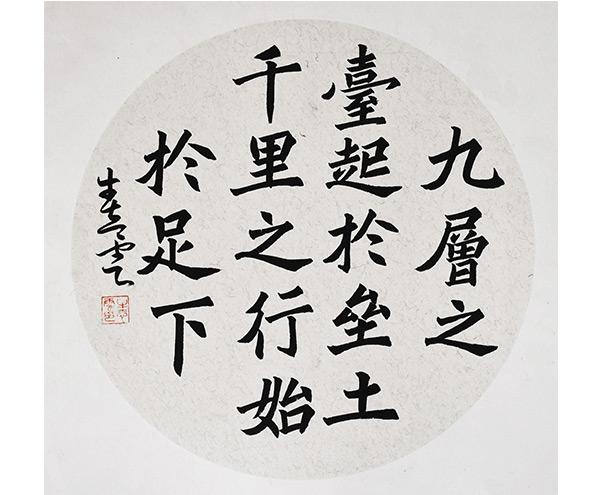 九層之
臺起於垒土
千里之行始
於足下